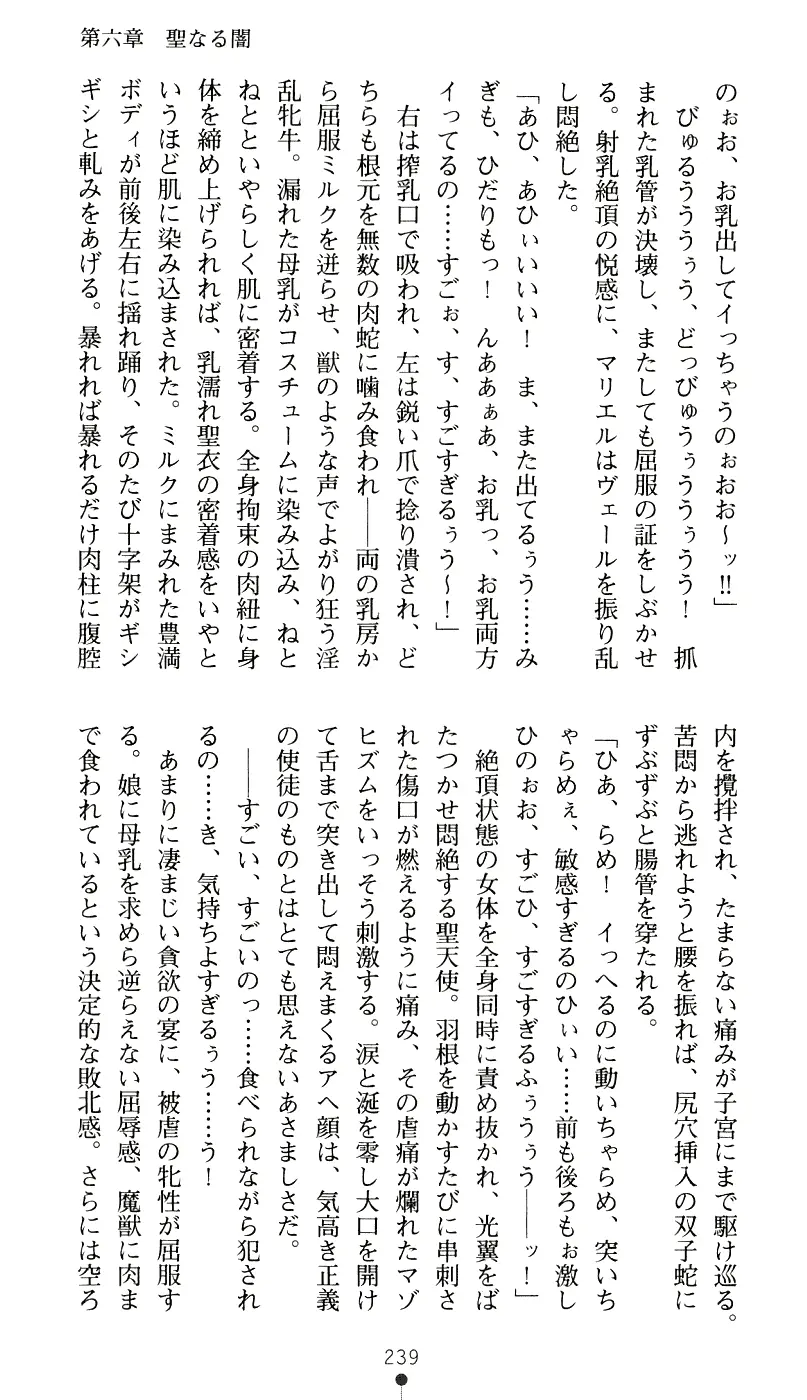 第六章　聖なる闇
のぉお、お乳出してイっちゃうのぉおお～ッ!!」
びゅるうううぅう、どっびゅうぅううぅうう！　抓
まれた乳管が決壊し、またしても屈服の証をしぶかせ
る。射乳絶頂の悦感に、マリエルはヴェールを振り乱
し悶絶した。
「あひ、あひぃいいい！　ま、また出てるぅう……み
ぎも、ひだりもっ！　んああぁあ、お乳っ、お乳両方
イってるの……すごぉ、す、すごすぎるぅう～！」
右は搾乳口で吸われ、左は鋭い爪で捻り潰され、ど
ちらも根元を無数の肉蛇に噛み食われ――両の乳房か
ら屈服ミルクを迸らせ、獣のような声でよがり狂う淫
乱牝牛。漏れた母乳がコスチュームに染み込み、ねと
ねとといやらしく肌に密着する。全身拘束の肉紐に身
体を締め上げられれば、乳濡れ聖衣の密着感をいやと
いうほど肌に染み込まされた。ミルクにまみれた豊満
ボディが前後左右に揺れ踊り、そのたび十字架がギシ
ギシと軋みをあげる。暴れれば暴れるだけ肉柱に腹腔
内を攪拌され、たまらない痛みが子宮にまで駆け巡る。
苦悶から逃れようと腰を振れば、尻穴挿入の双子蛇に
ずぶずぶと腸管を穿たれる。
「ひあ、らめ！　イっへるのに動いちゃらめ、突いち
ゃらめぇ、敏感すぎるのひぃい……前も後ろもぉ激し
ひのぉお、すごひ、すごすぎるふぅうぅう――ッ！」
絶頂状態の女体を全身同時に責め抜かれ、光翼をば
たつかせ悶絶する聖天使。羽根を動かすたびに串刺さ
れた傷口が燃えるように痛み、その虐痛が爛れたマゾ
ヒズムをいっそう刺激する。涙と涎を零し大口を開け
て舌まで突き出して悶えまくるアヘ顔は、気高き正義
の使徒のものとはとても思えないあさましさだ。
――すごい、すごいのっ……食べられながら犯され
るの……き、気持ちよすぎるぅう……う！
あまりに凄まじい貪欲の宴に、被虐の牝性が屈服す
る。娘に母乳を求めら逆らえない屈辱感、魔獣に肉ま
で食われているという決定的な敗北感。さらには空ろ
239